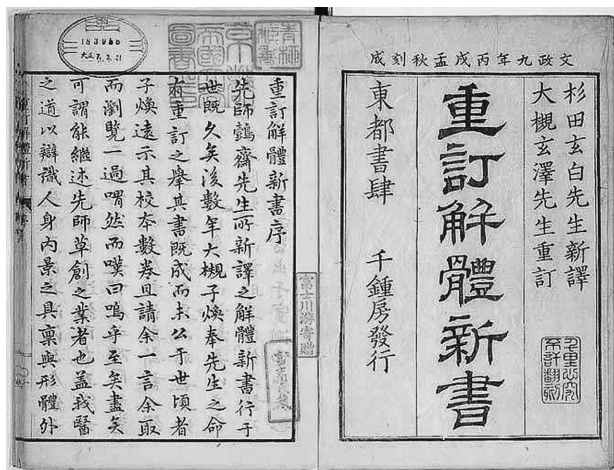 文政九年丙戌孟秋刻成
杉田玄白先生新譯
大槻玄澤先生重訂
重訂解體新書
東都書肆 千鍾房發行
千里必究
不許翻刻
富士川游寄贈
重訂解體新書序
先師鷧齋先生所新譯之解體新書行于
世既久矣後數年大槻子煥奉先生之命
有重訂之擧其書既成而未公于世頃者
子煥遠示其校本數卷且請余一言余取
而瀏覽一過喟然而嘆曰嗚乎至矣盡矣
可謂能繼述先師草創之業者也蓋我醫
之道以辯識人身内景之具稟與形體外
183956
大正7.3.31